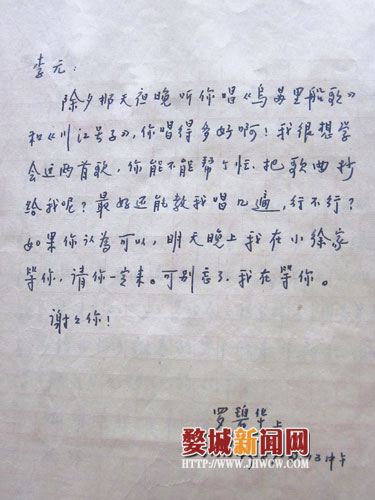 李元：
除夕那天夜晚听你唱《乌苏里船歌》
和《川江号子》，你唱得多好啊！我很想学
会这两首歌，你能不能帮个忙，把歌曲抄
给我呢？最好还能教我唱几遍，行不行？
如果你认为可以，明天晚上我在小徐家
等你，请你一定来。可别忘了，我在等你。
谢谢你！
罗碧华上
婺城新闻网
HTTP://WWW.JHWCW.COM